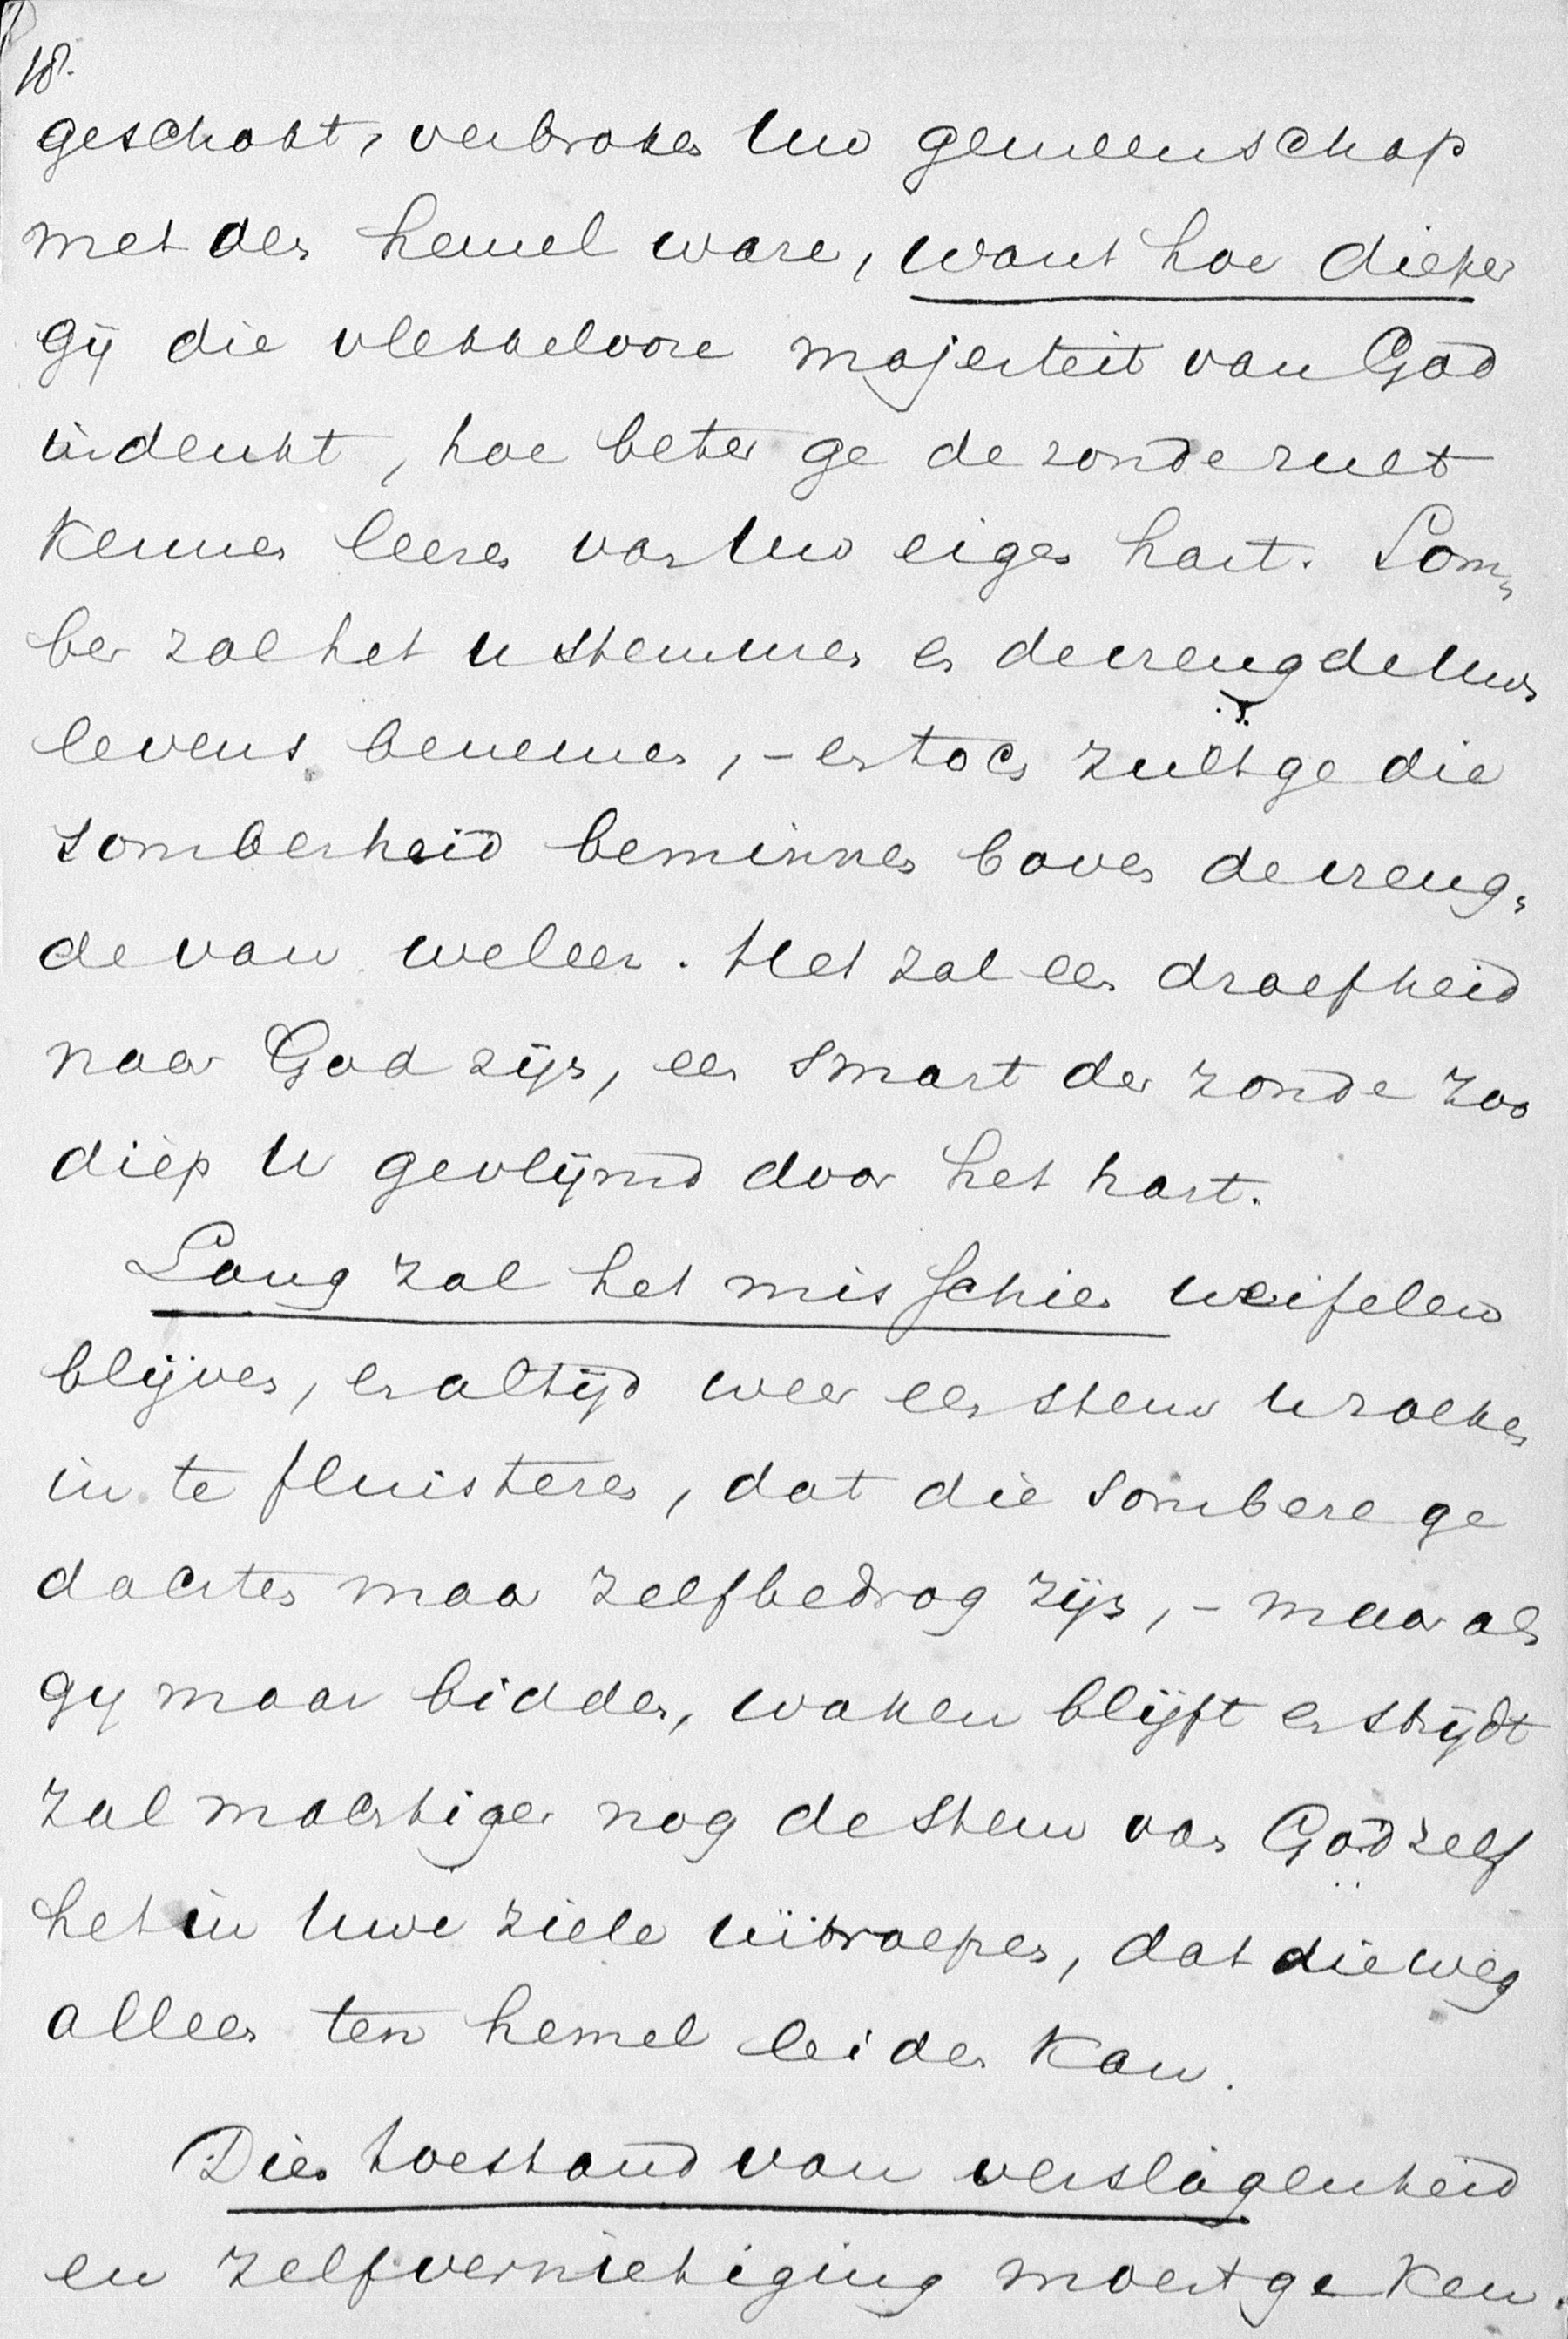 18.
geschokt, verbroken Uw gemeenschap
met den hemel ware, want hoe dieper
gij die vlekkelooze majesteit van God
indenkt, hoe beter ge de zonde zult
kennen leeren van Uw eigen hart. Som„
ber zal het u stemmen en de vreugde Uws
levens benemen, – en toch zult ge die
somberheid beminnen boven de vreug„
de van weleer. Het zal een droefheid
naar God zijn, een smart der zonde zoo
diep U gevlijmd door het hart.
Lang zal het misschien weifelen
blijven, en altijd weer een stem U zoeken
in te fluisteren, dat die sombere ge
dachten maar zelfbedrog zijn, – maar als
gij maar bidden, waken blijft en strijdt
zal machtiger nog de stem van God zelf
het in Uwe ziele uitroepen, dat die weg
alleen ten hemel leiden kan.
Dien toestand van verslagenheid
en zelfvernietiging moest ge ken„